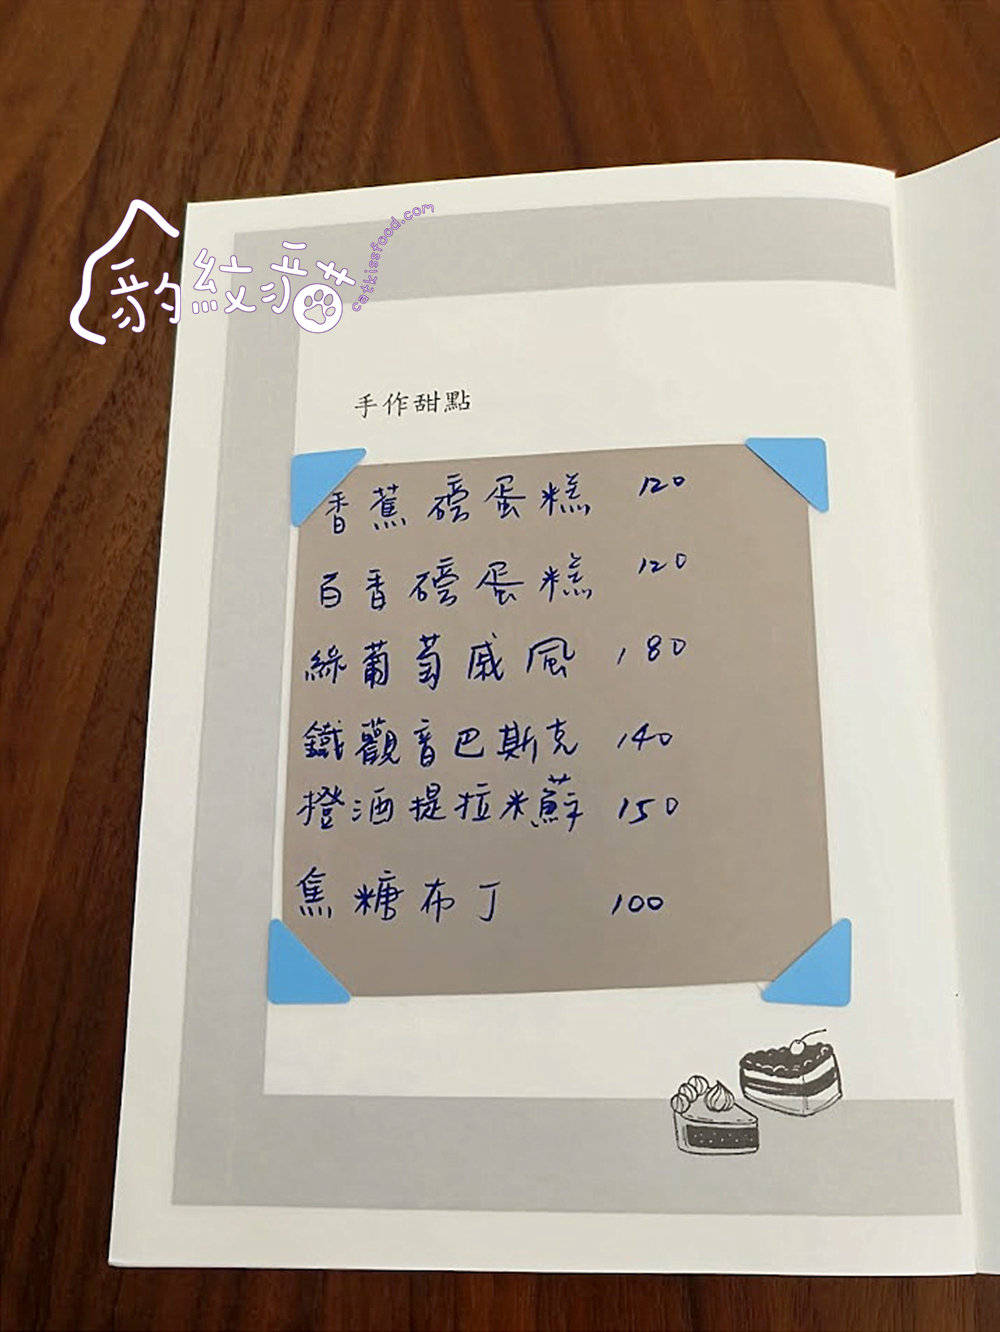 豹紋貓
catkissfood.com
手作甜點
香蕉磅蛋糕 120
百香磅蛋糕 120
綠葡萄戚風 180
鐵觀音巴斯克 140
橙酒提拉米蘇 150
焦糖布丁 100